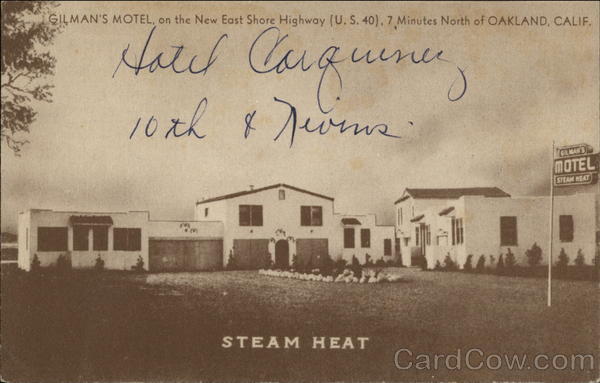 GILMAN'S MOTEL, on the New East Shore Highway (U. S. 40), 7 Minutes North of OAKLAND, CALIF.
Hotel Carquinez
10th & Nevins.
GILMAN'S
MOTEL
STEAM HEAT
STEAM HEAT
CardCow.com